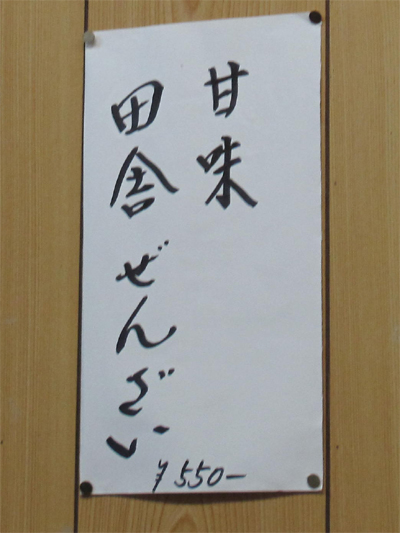 甘味
田舎ぜんざい
¥550-